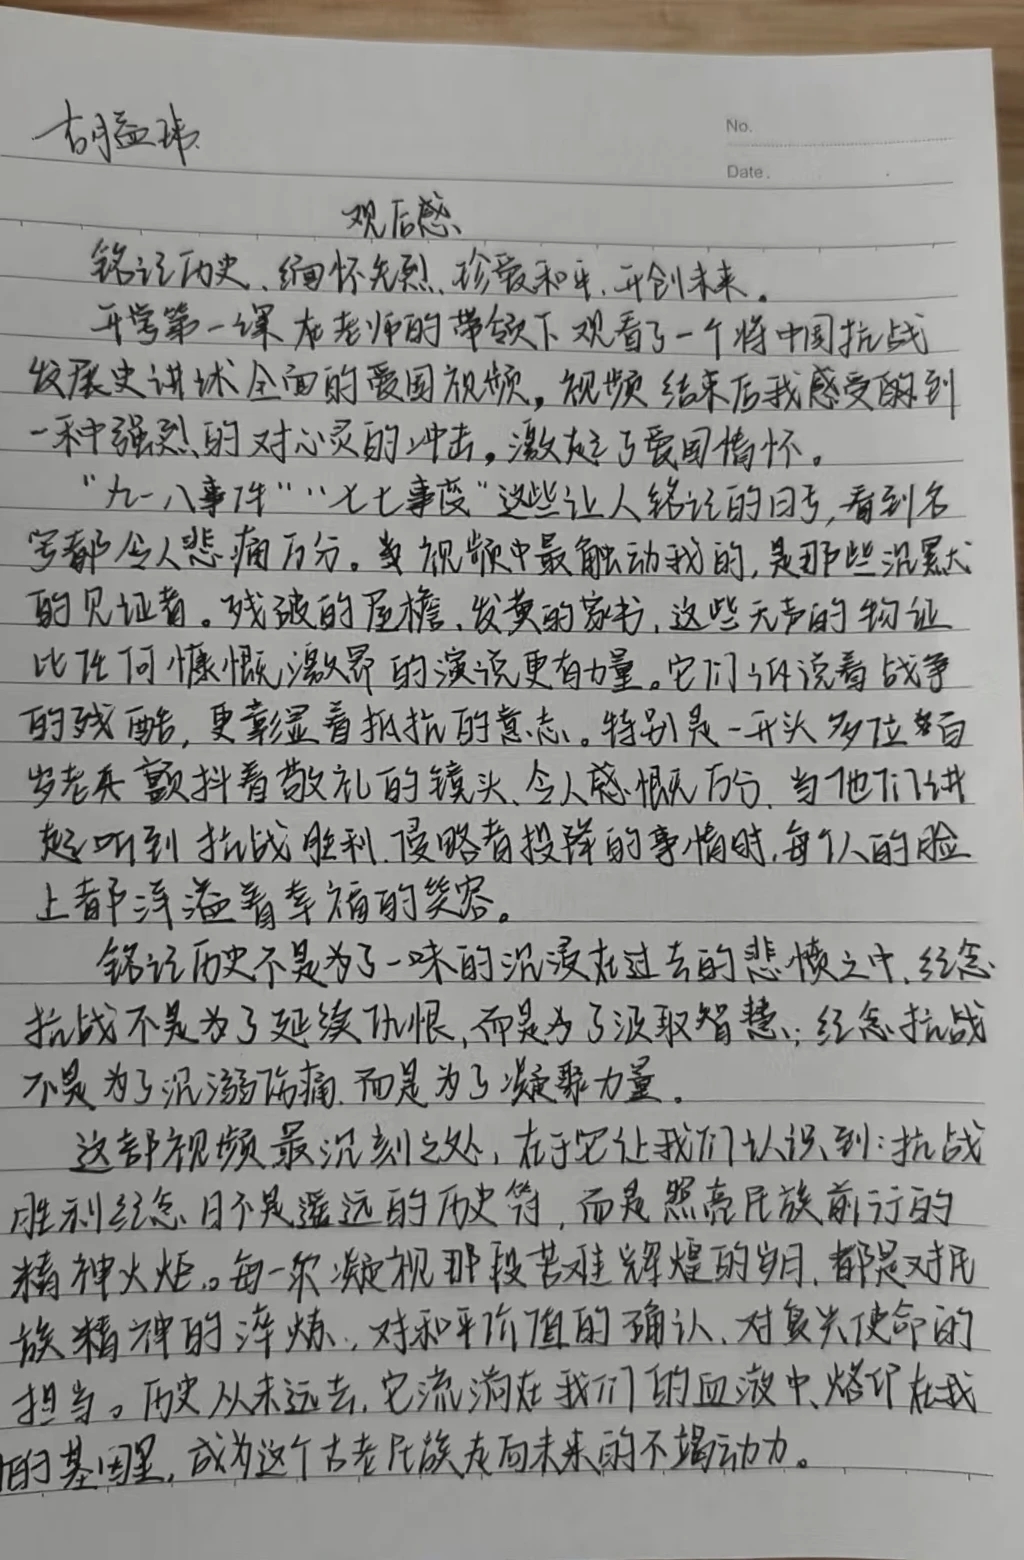 胡益玮
No.
Date.
观后感
铭记历史、缅怀先烈、珍爱和平、开创未来。
开学第一课在老师的带领下观看了一个将中国抗战
发展史讲述全面的爱国视频，视频结束后我感受到
一种强烈的对心灵的冲击，激起了爱国情怀。
“九一八事件”“七七事变”这些让人铭记的日号，看到名
字都令人悲痛万分。当视频中最触动我的，是那些沉默
的见证者。残破的屋檐、发黄的家书，这些无声的物证
比任何慷慨激昂的演说更有力量。它们诉说着战争
的残酷，更彰显着抵抗的意志。特别是一开头多位百
岁老兵颤抖着敬礼的镜头、令人感慨万分，当他们讲
起听到抗战胜利、侵略者投降的事情时，每个人的脸
上都洋溢着幸福的笑容。
铭记历史不是为了一味的沉浸在过去的悲愤之中，纪念
抗战不是为了延续仇恨，而是为了汲取智慧；纪念抗战
不是为了沉溺伤痛，而是为了凝聚力量。
这部视频最沉刻之处，在于它让我们认识到：抗战
胜利纪念日不是遥远的历史符，而是照亮民族前行的
精神火炬。每一次凝视那段苦难辉煌的岁月，都是对民
族精神的淬炼，对和平价值的确认、对复兴使命的
担当。历史从未远去，它流淌在我们的血液中、烙印在我
们的基因里，成为这个古老民族走向未来的不竭动力。